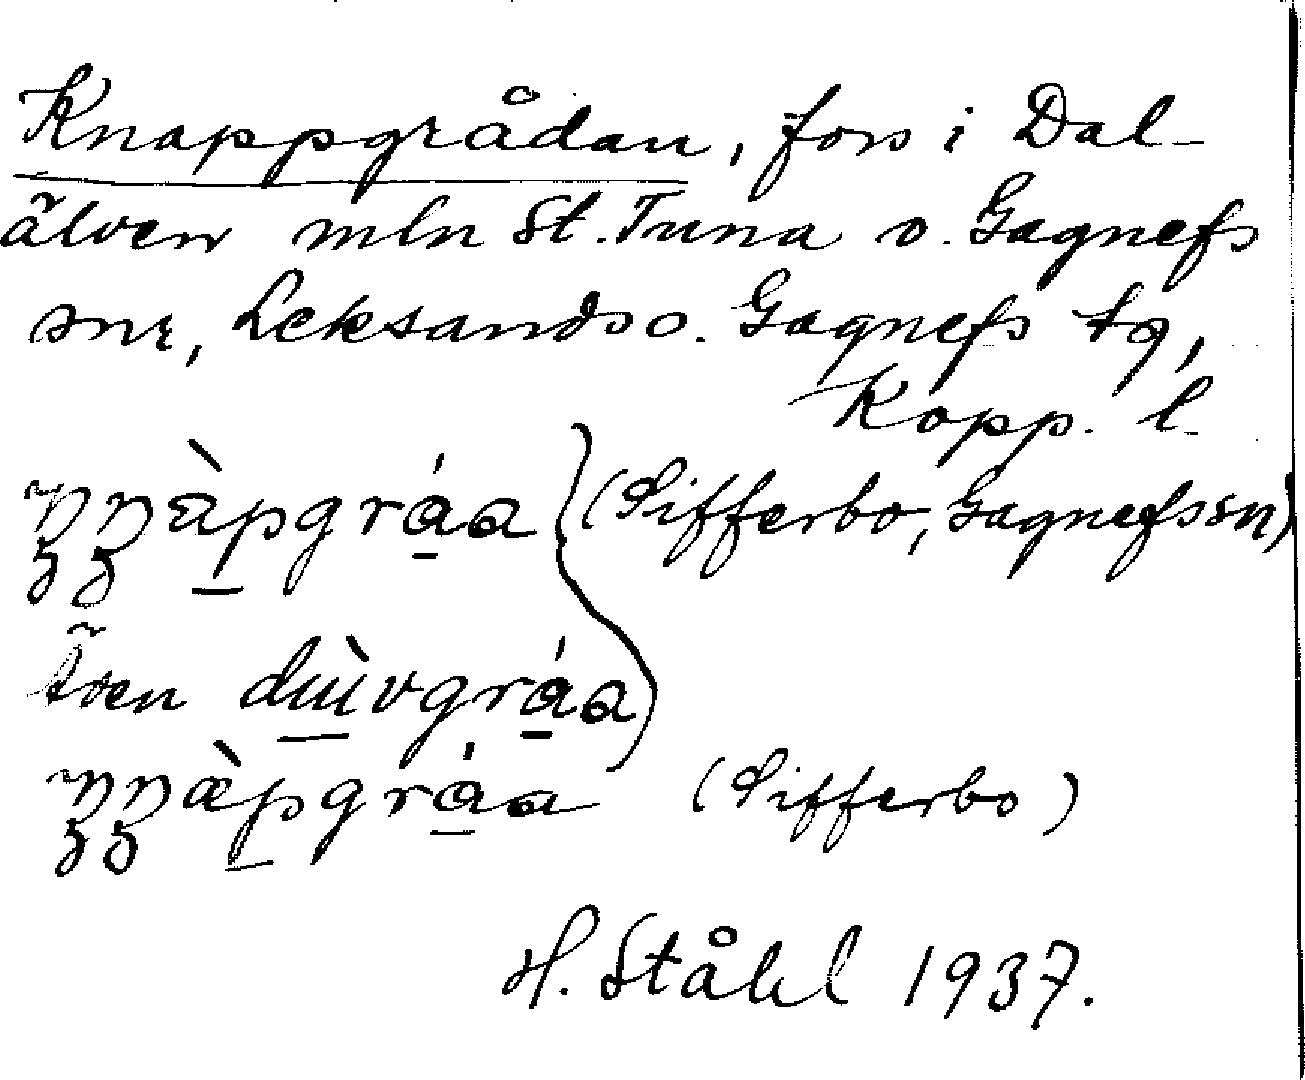 Knappgrådan, fors i Dal-
älven mln St. Tuna o. Gagnefs
snr, Leksands o. Gagnefs tg,
Kopp. l.
(Sifferbo, Gagnefssn)
Även
(Sifferbo)
H. Ståhl 1937.